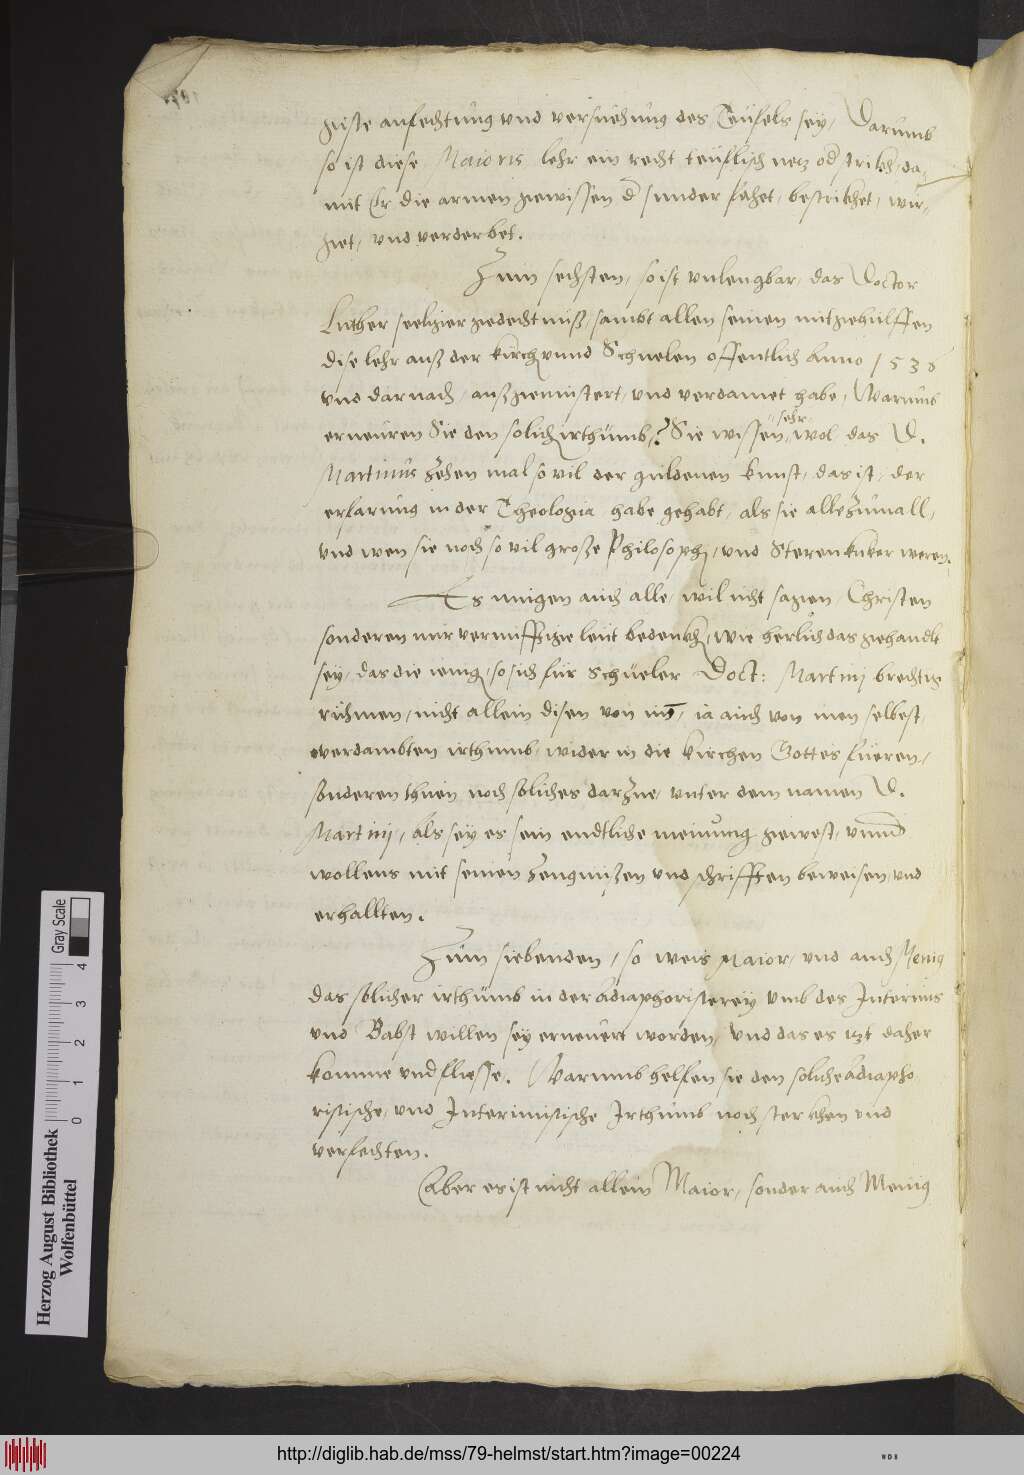 giste anfechtung und versuchung des Teufels sey, Darumb
so ist diese Maioris lehr ein recht teuflisch netz od strikh, da,
mit Er die armen gewissen d sunder fahet, bestrikhet, wir,
get, und verderbet.
Zum sechsten, so ist unlengbar, das Doctor
Luther seeliger gedechtniß, sambt allen seinen mitgehülffen
dise lehr auß der kirch unnd Schuelen offentlich Anno 1536
und darnach, außgemustert, und verdamet habe, Warumb
erneuren Sie den solich irthumb,? Sie wissen sehr wol das D.
Martinus Zehen mal so vil der guldenen kunst, das ist, der
erfarung in der Theologia habe gehabt, als sie allezumall,
und wen sie noch so vil große Philosophj, und Sterenkuker weren.
Es mugen auch alle, wil nicht sagen, Christen
sonderen nur vernufftige leut bedenkh, wie herlich das gehandlt
sey, das die ienig, so sich für Schüeler Doct: Martinj
rühmen, nicht allein disen von uns, ia auch von inen selbest,
verdambten irthumb, wider in die kirchen Gottes füeren,
sonderen thuen noch soliches darzue, unter dem namen D.
Martinj, als sey es sein endtliche meinung gewest, unnd
wollens mit seinen zeugnußen und schrifften beweisen, und
erhallten.
Zum siebenden, so weis Maior, und auch Menig
das solicher irthumb in der Adiaphoristerey umb des Interims
und Babst willen sey erneuert worden, und das es izt daher
komme und fliesse. Warumb helfen sie den soliche Adiapho
ristische, und Interimistische Irthumb noch sterkhen und
verfechten.
Aber es ist nicht allein Maior, sonder auch Menig
Gray Scale
0 1 2 3 4
Herzog August Bibliothek
Wolfenbüttel
http://diglib.hab.de/mss/79-helmst/start.htm?image=00224